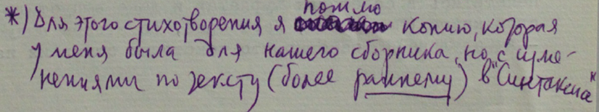 *) Для этого стихотворения я помню копию, которая
у меня была для нашего сборника, но с изме-
нениями по тексту (более раннему) в "Синтаксис"